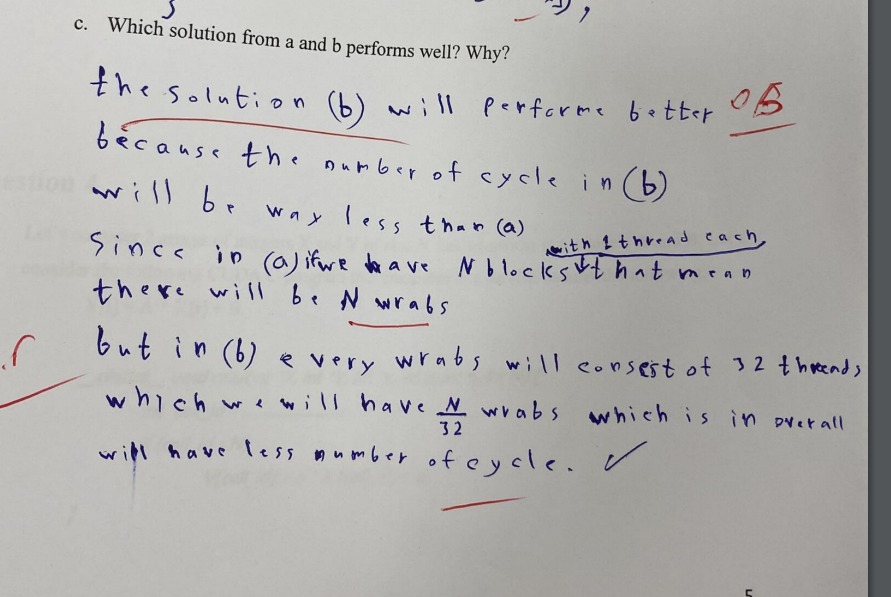 c. Which solution from a and b performs well? Why?
the solution (b) will performe better
because the number of cycle in (b)
will be way less than (a)
with 1 thread each
Since in (a) if we have N blocks that mean
there will be N wrabs
but in (b) every wrabs will consest of 32 threads
which we will have N/32 wrabs which is in overall
will have less number of cycle. ✓
5